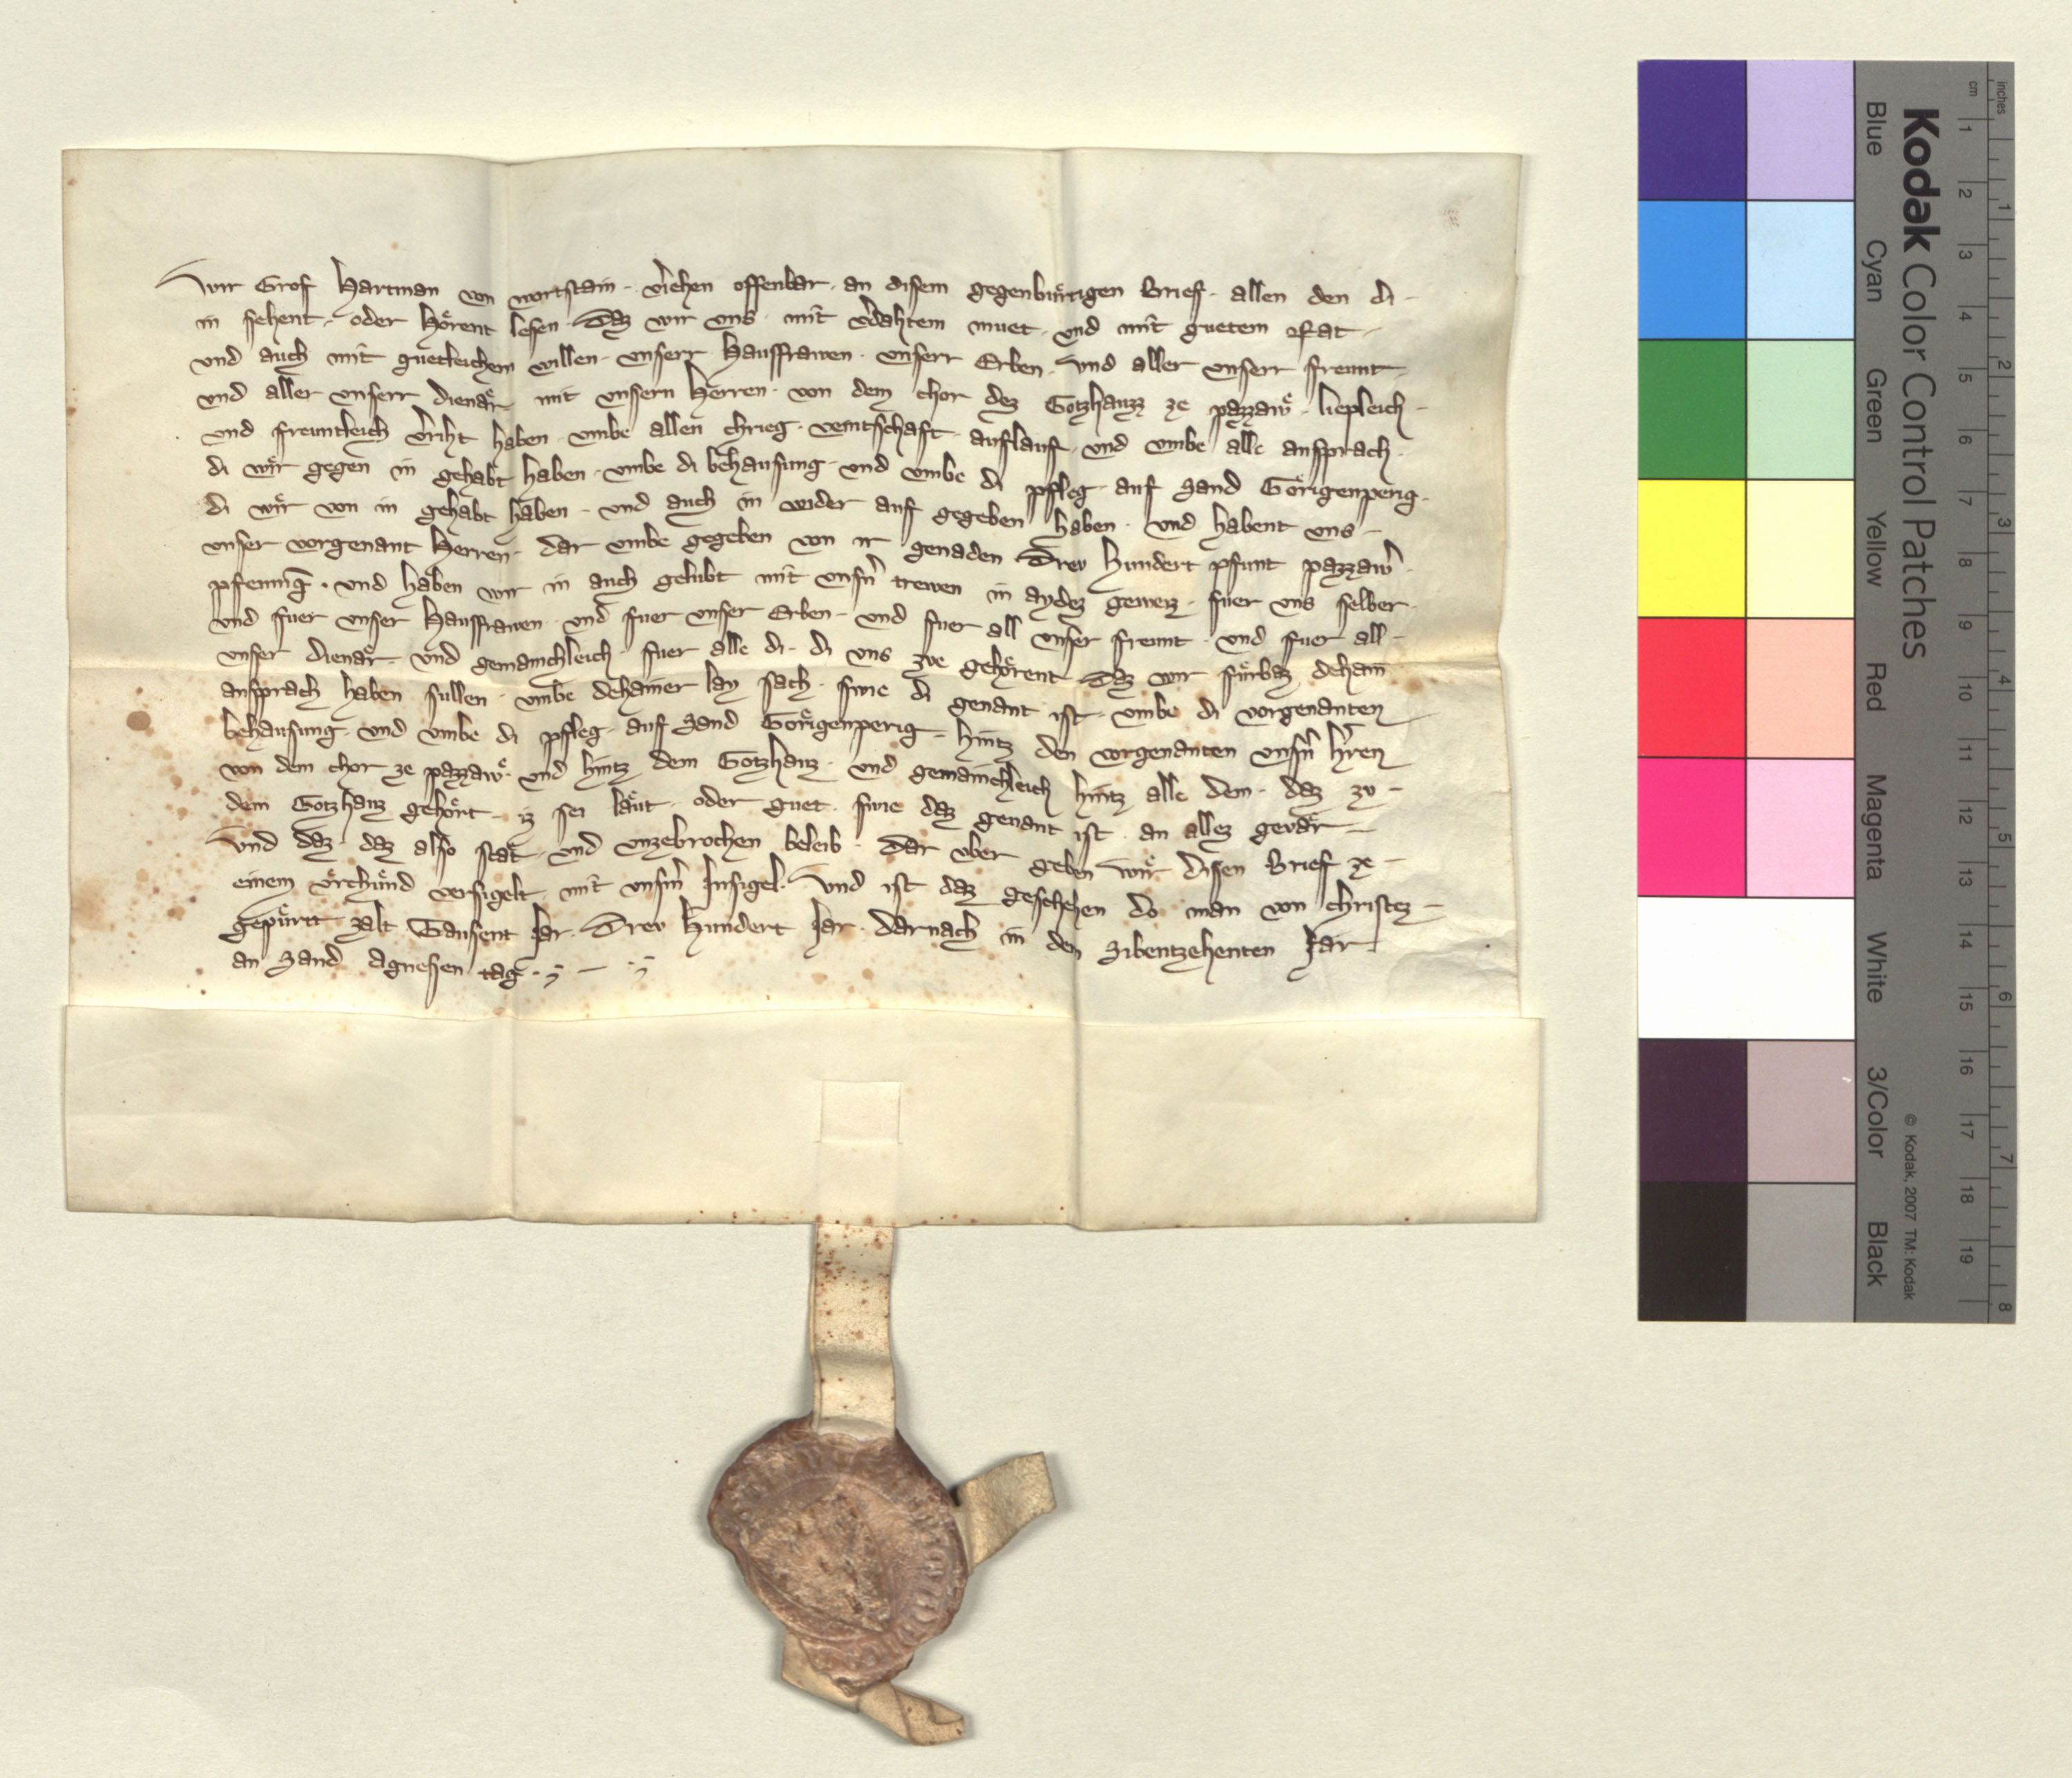 Wir Grof Hartman von wartstain · v̾iehen offenbar · an disem gegenburtigen Brief · allen den di ·
in sehent · oder Hoͤrent lesen · Daz wir uns · mit v̾dahtem muet · vnd mit guetem Rat ·
vnd auch mit guetleichem willen · vnserr Hausfrawen · vnserr Erben · Vnd aller vnserr freunt ·
vnd aller vnserr dienaͤr · mit vnsern Herren · von dem chor dez Gotzhauzz ze pazzawͤ · liepleich ·
vnd freuntleich v̾riht haben · vmbe allen chrieg · veintschaft · auflauf · vnd vmbe alle ansprach ·
di wiͤr gegen in gehabt haben · vmbe di behausung · vnd vmbe di pfleg · auf Sand Goͤrigenperig ·
di wiͤr von in gehabt haben · vnd auch in wider auf gegeben haben · vnd habent vns ·
vnser vorgenant Herren · dar vmbe gegeben von ir genaden Drev Hundert pfunt pazzaw̾ ·
pfenning̅ · vnd haben wir in auch gelubt mit vnsn̾ trewen in aydez gewers · fuer vns selber ·
vnd fuer vnser Hausfrawen · vnd fuer vnser Erben · vnd fuer all vnser freunt · vnd fuer all ·
vnser dienaͤr · vnd gemainchleich · fuer alle di · di vns zve gehoͤrent · Daz wir fuͤrbaz dehain
ansprach haben sullen · vmbe dehainer lay sach · swie di genant ist · vmbe di vorgenanten
behausung · vnd vmbe di pfleg · auf Sand Goͤrigenperig · hintz den vorgenanten vnsn̾ h̾ren
von dem chor ze pazzawͤ · vnd hintz dem Gotzhauz · vnd gemainchleich hintz alle dem · daz zv ·
dem Gotzhauz gehoͤrt · iz sei laͤut · oder guet · swie daz genant ist · an allez gevaͤr ·
Vnd daz · daz also staͤt · vnd vnzebrochen beleib · Dar vber geben wiͤr disen Brief ze ·
einem vͤrchuͤnd versigelt mit vnsm̾ Insigel · Vnd ist daz geschehen do man von christez ·
gepuͤrtt zalt Tausent Jar · Drev Hundert Jar · darnach in den Sibentzehenten Jar
an Sand Agnesen tag ·
Kodak Color Control Patches
Blue Cyan Green Yellow Red Magenta White 3/Color Black
© Kodak, 2007 TM: Kodak
cm 1 2 3 4 5 6 7 8 9 10 11 12 13 14 15 16 17 18 19
inches 1 2 3 4 5 6 7 8